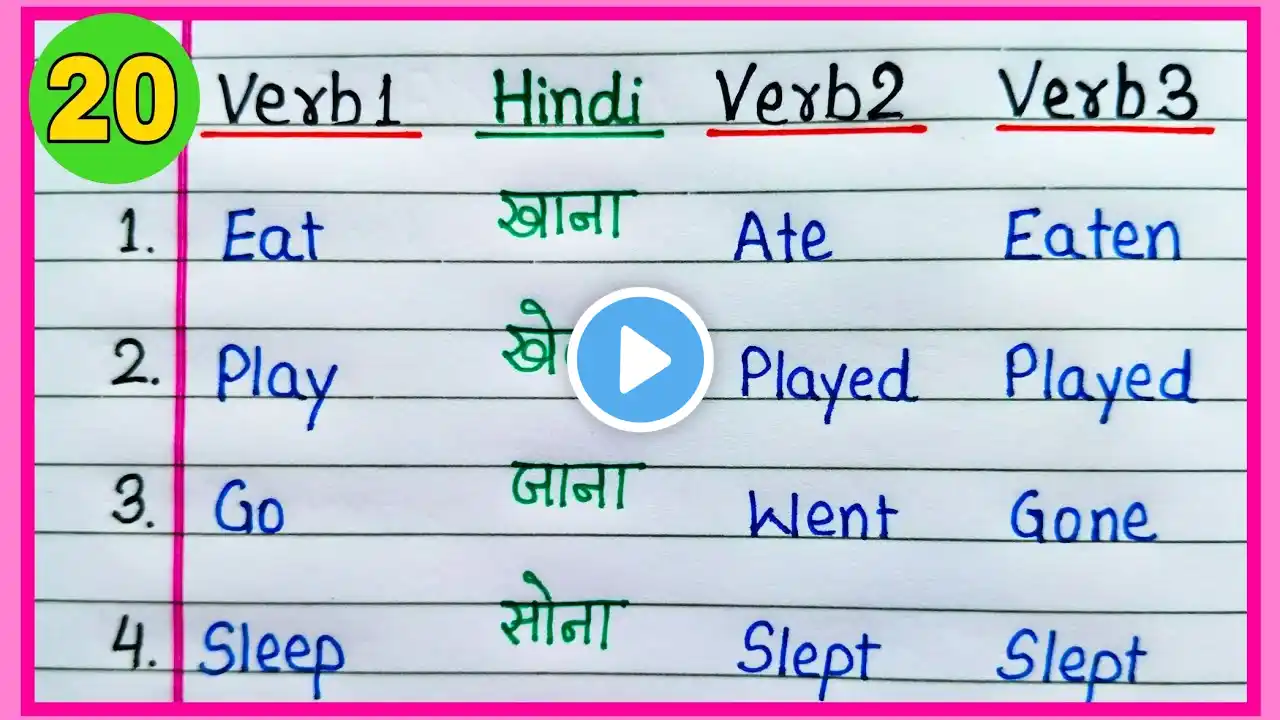 20 Verb1 Hindi Verb2 Verb3
1. Eat खाना Ate Eaten
2. Play Played Played
3. Go जाना Went Gone
4. Sleep सोना Slept Slept